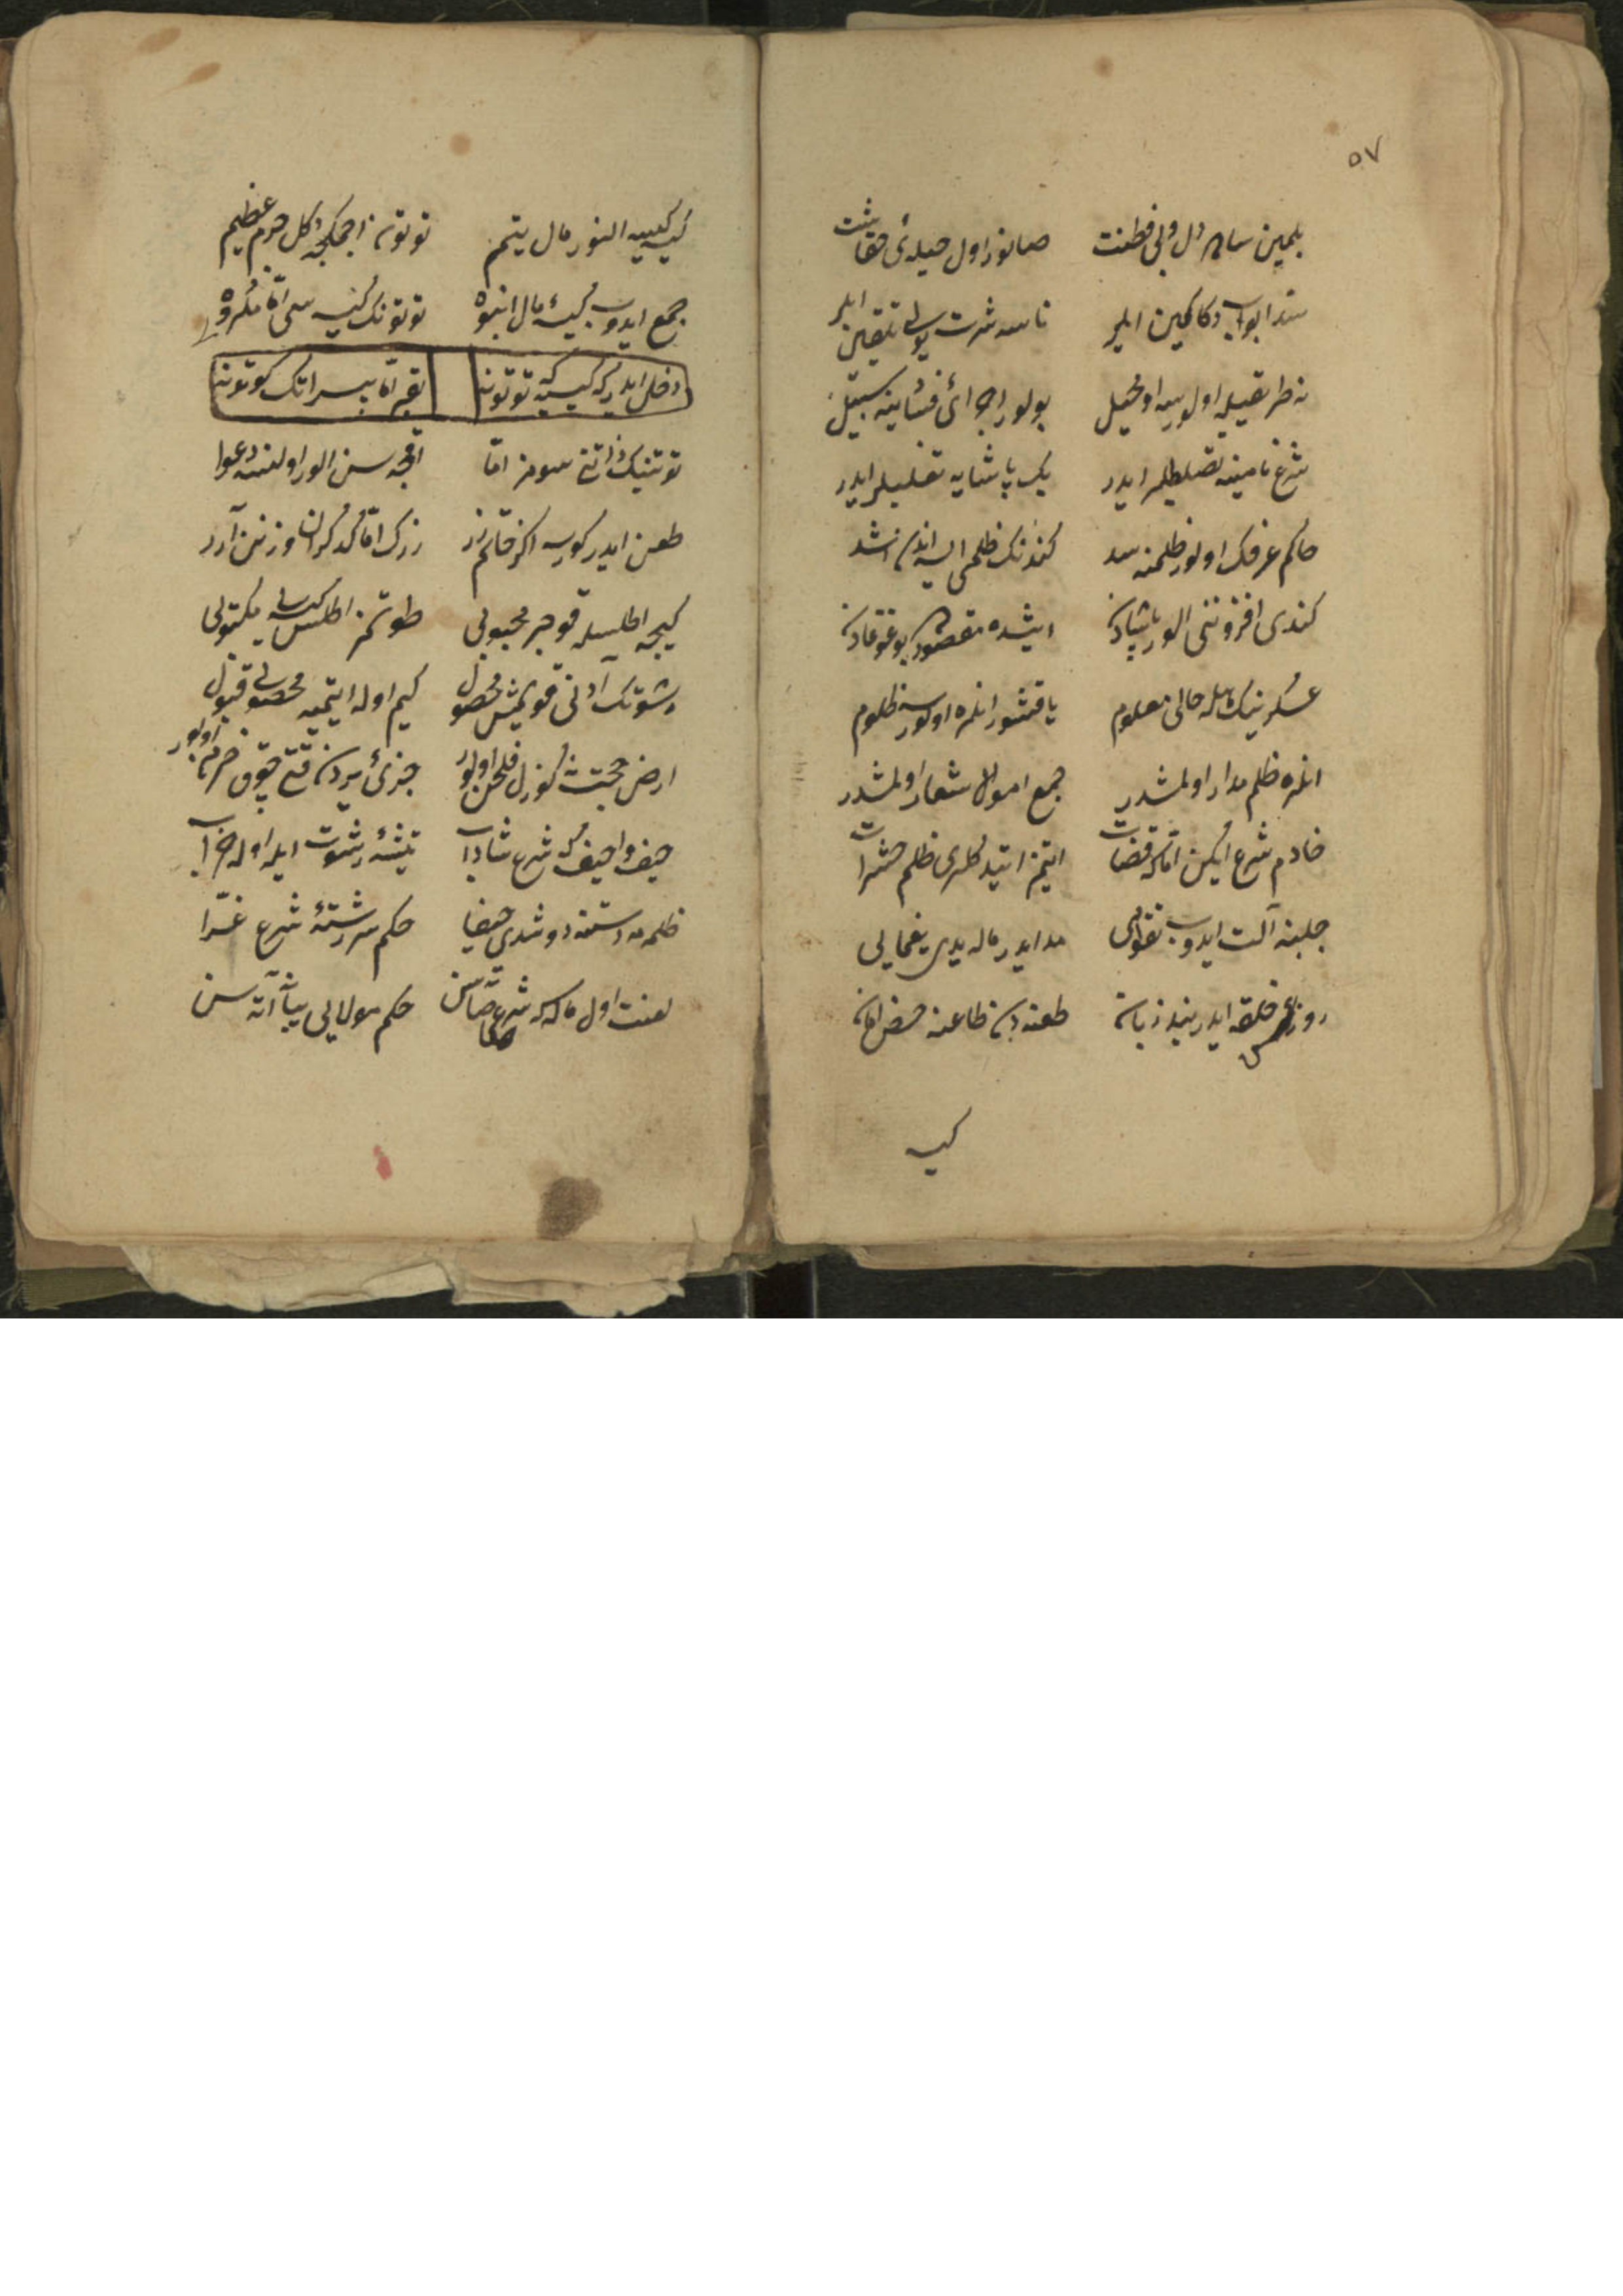 ٥٧
بلمین ساده دل و بی فطنت صانور اول حیله‌ئی حقانیت
سد ابواب دکاکین ایلر ناسه شرت یولی تلقین ایلر
نه طریقیله اولورسه او محیل بولور اجرای فسادینه سبیل
شرع نامینه تصلیطلر ایدر بك پاشایه تغلیلر ایدر
حاکم عرفك اولور ظلمنه سد کندنك ظلمی ایسه اندن اشد
کندی افزوننی الور پاشادن ایشده مقصود بو غوغادن
عسکرینك هله حالی معلوم یاقشور انلره اولورسه ظلوم
انلره ظلم مدار اولمشدر جمع اموال شعار اولمشدر
خادم شرع ایکن اما که قضات ایتمز ایتدکلری ظلمی حشرات
جلبنه آلت ایدوب تقوایی مد ایدر ماله ید یغمایی
خلقه ایدر بند زبان طعندن طاعنه حض امان
کیسه
کیسه کیسه النور مال یتیم توتون ایچمکجه دکل جرم عظیم
جمع ایدوب کیسه مال انبوه توتونك کیسه سی اما مکروه
دخل ایدر کیسه که توتونه اتك کوتونه
توتنك ذاتنی سومز اما اقچه سن الور اولنسه دعوا
طعن ایدر کورسه اکر خاتم زر زرك اما که کران وزنن آرر
کیجه اطلسله قوجر محبوبی طوتمز اطلس کیسه مکتوبی
رشوتك آدنی قویمش محصول کیم اوله ایتمیه محصولی قبول
ارض جنت کوزل اولور جزئی یردن قتی چوق خرمن اولور
حیف واحیف که شرع شاداب تیشه رشوت ایله اوله خراب
ظلمه دستنه دوشدی حیفا حکم سررشته شرع غرا
لعنت اول حاکمه که شرعی صاتسن حکم مولایی یبانه آتسن